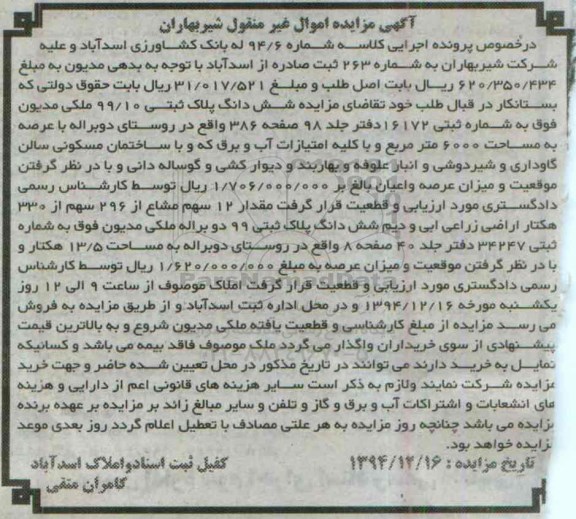 آگهی مزایده اموال غیر منقول شیربهاران
درخصوص پرونده اجرایی کلاسه شماره ۹۴/۶ له بانک کشاورزی اسدآباد و علیه
شرکت شیربهاران به شماره ۲۶۳ ثبت صادره از اسدآباد با توجه به بدهی مدیون به مبلغ
۶۲۰/۳۵۰/۴۳۴ ریال بابت اصل طلب و مبلغ ۳۱/۰۱۷/۵۲۱ ریال بابت حقوق دولتی که
بستانکار در قبال طلب خود تقاضای مزایده شش دانگ پلاک ثبتی ۹۹/۱۰ ملکی مدیون
فوق به شماره ثبتی ۱۶۱۷۲دفتر جلد ۹۸ صفحه ۳۸۶ واقع در روستای دوبراله با عرصه
به مساحت ۶۰۰۰ متر مربع و با کلیه امتیازات آب و برق که و با ساختمان مسکونی سالن
گاوداری و شیردوشی و انبار علوفه و بهاربند و دیوار کشی و گوساله دانی و با در نظر گرفتن
موقعیت و میزان عرصه واعیان بالغ بر ۱/۷۰۶/۰۰۰/۰۰۰ ریال توسط کارشناس رسمی
دادگستری مورد ارزیابی و قطعیت قرار گرفت مقدار ۱۲ سهم مشاع از ۲۹۶ سهم از ۳۳۰
هکتار اراضی زراعی ابی و دیم شش دانگ پلاک ثبتی ۹۹ دو براله ملکی مدیون فوق به شماره
ثبتی ۳۴۲۴۷ دفتر جلد ۴۰ صفحه ۸ واقع در روستای دوبراله به مساحت ۱۳/۵ هکتار و
با در نظر گرفتن موقعیت و میزان عرصه به مبلغ ۱/۶۲۰/۰۰۰/۰۰۰ ریال توسط کارشناس
رسمی دادگستری مورد ارزیابی و قطعیت قرار گرفت املاک موصوف از ساعت ۹ الی ۱۲ روز
یکشنبه مورخه ۱۳۹۴/۱۲/۱۶ و در محل اداره ثبت اسدآباد و از طریق مزایده به فروش
می رسد مزایده از مبلغ کارشناسی و قطعیت یافته ملکی مدیون شروع و به بالاترین قیمت
پیشنهادی از سوی خریداران واگذار می گردد ملک موصوف فاقد بیمه می باشد و کسانیکه
تمایل به خرید دارند می توانند در تاریخ مذکور در محل تعیین شده حاضر و جهت خرید
مزایده شرکت نمایند ولازم به ذکر است سایر هزینه های قانونی اعم از دارایی و هزینه
های انشعابات و اشتراکات آب و برق و گاز و تلفن و سایر مبالغ زائد بر مزایده بر عهده برنده
مزایده می باشد چنانچه روز مزایده به هر علتی مصادف با تعطیل اعلام گردد روز بعدی موعد
مزایده خواهد بود.
تاریخ مزایده : ۱۳۹۴/۱۲/۱۶
کفیل ثبت اسنادواملاک اسدآباد
کامران متقی